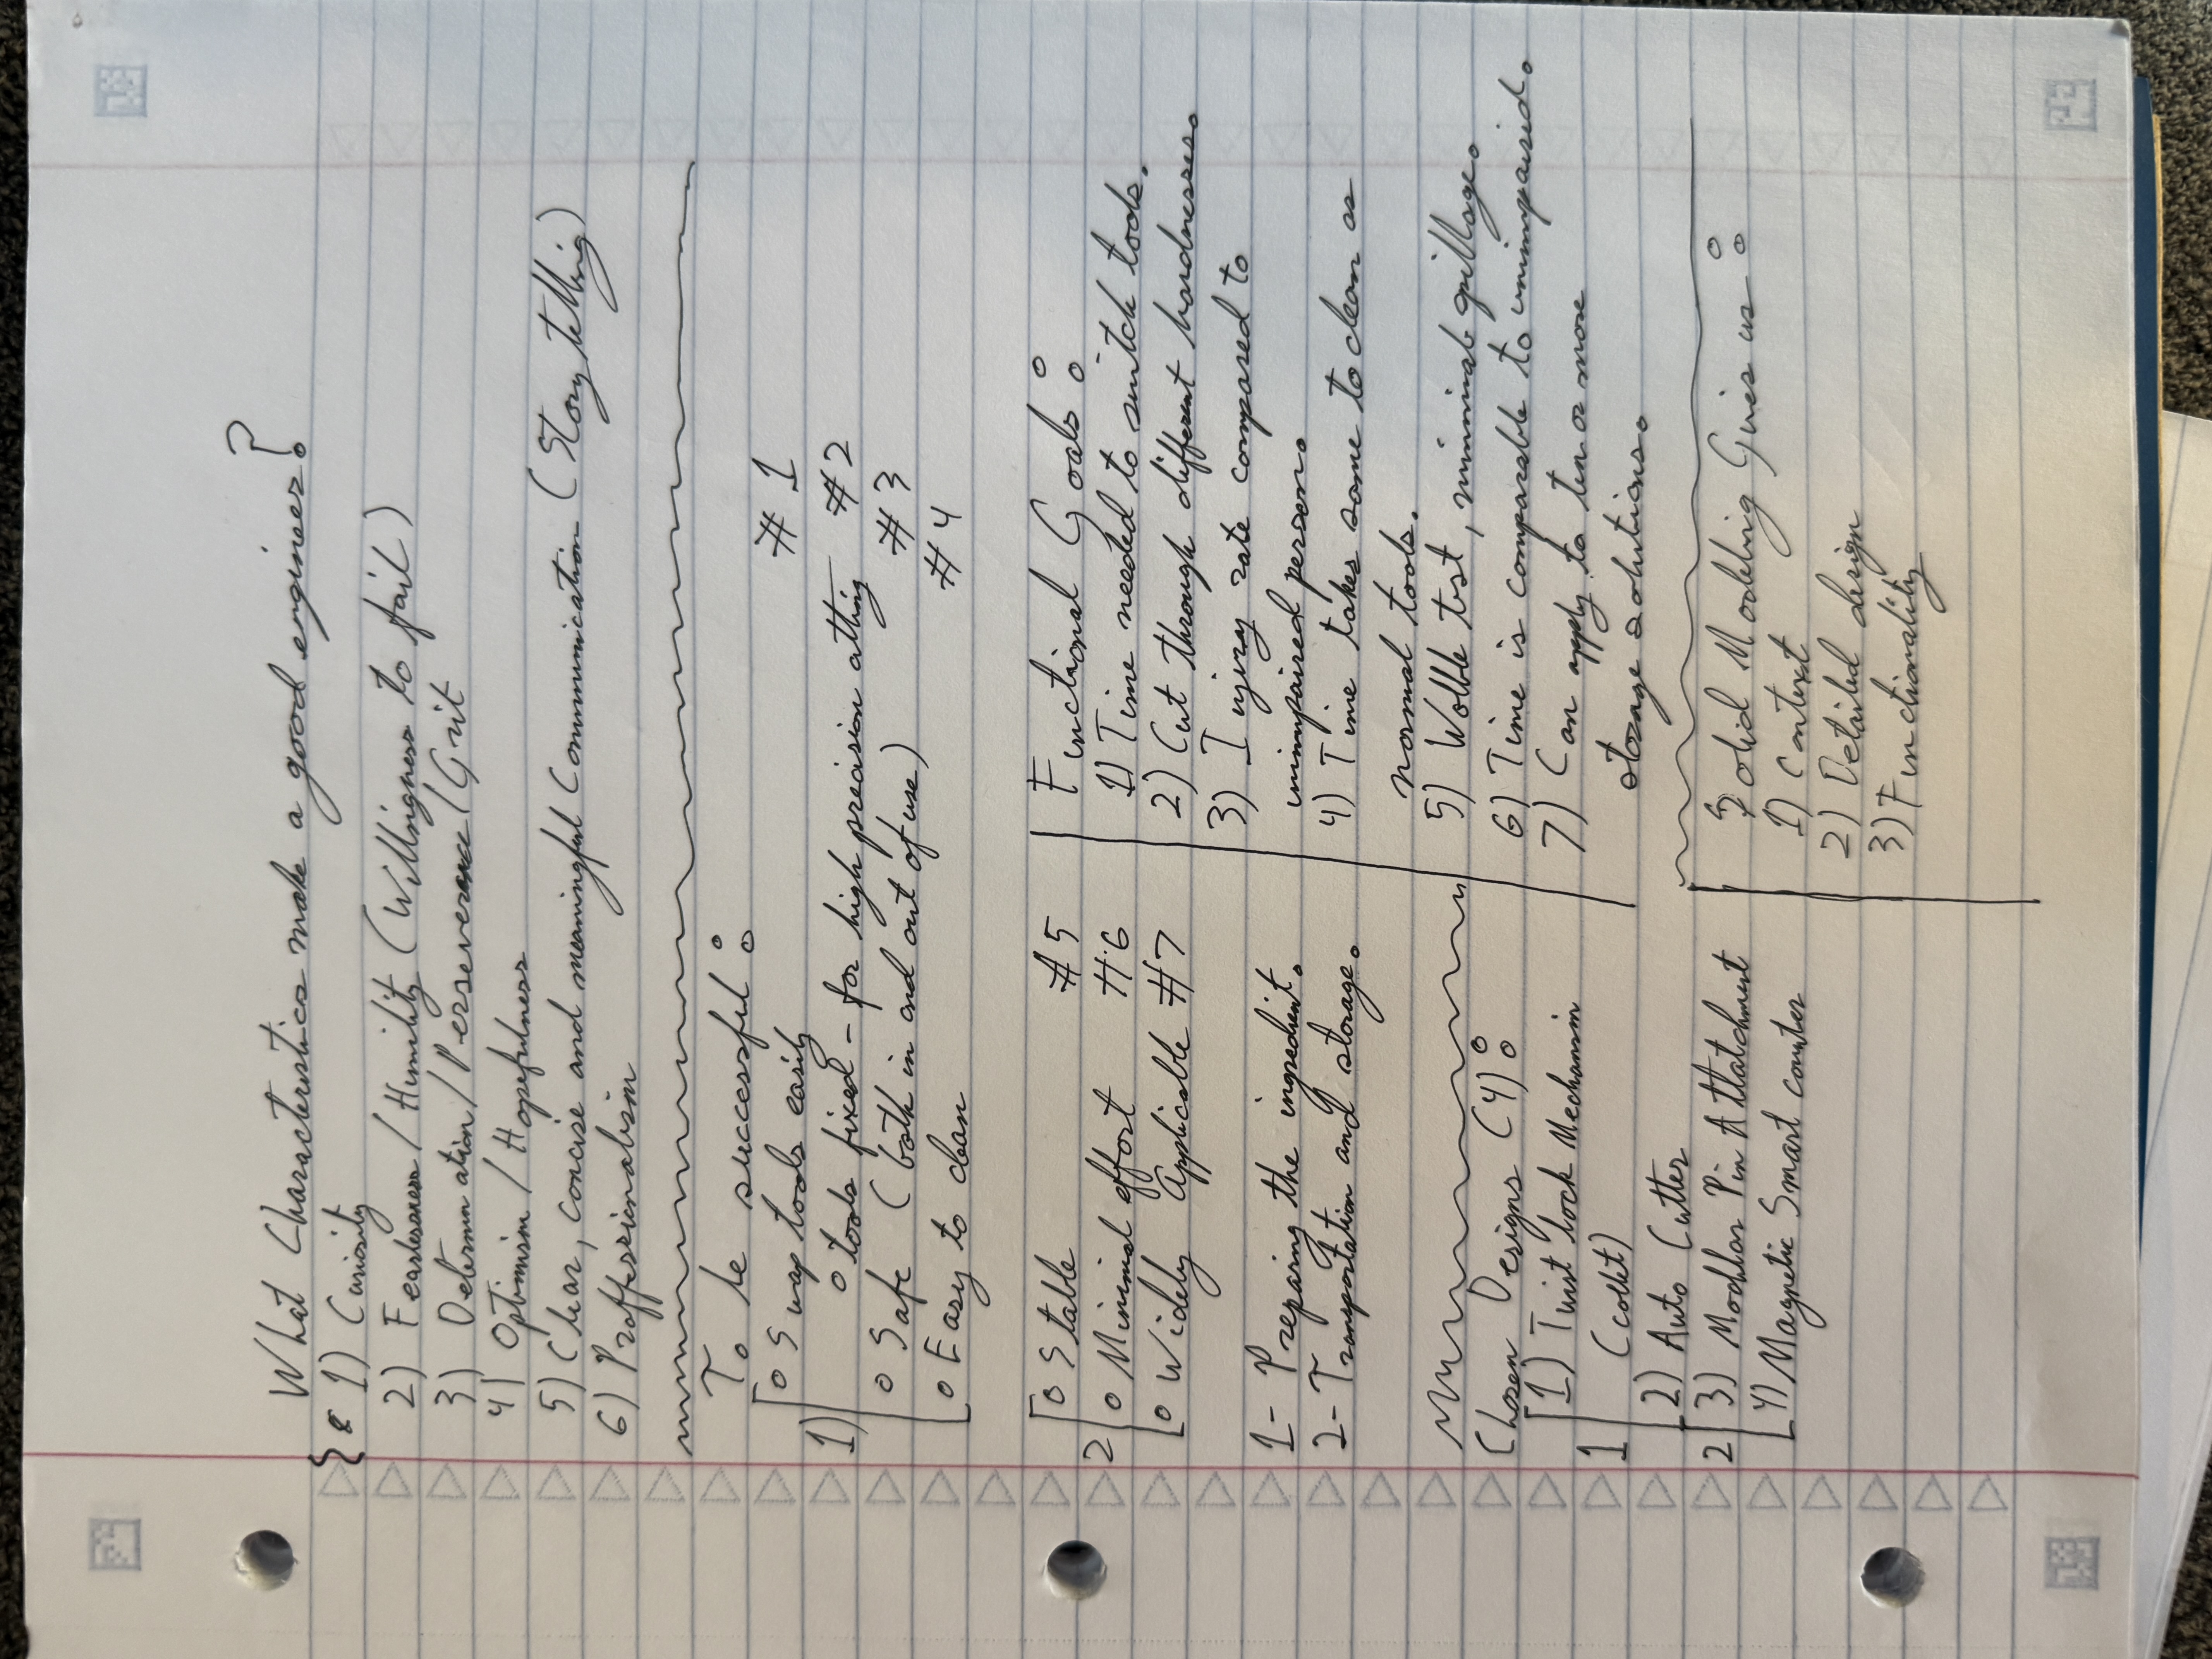 What Characteristics make a good engineer?
1) Curiosity
2) Fearlessness / Humility (Willingness to fail)
3) Determination / Perserverance / Grit
4) Optimism / Hopefulness
5) Clear, concise and meaningful Communication (Story telling)
6) Proffesionalism
To be successful:
1) o Swap tools easily #1
o tools fixed - for high precision #2
o Safe (both in and out of use) #3
o Easy to clean #4
2 o Stable #5
o Minimal effort #6
o Widely Applicable #7
1- Preparing the ingredient.
2- Transportation and storage.
Functional Goals:
1) Time needed to switch tools.
2) Cut through different hardnesses.
3) Injury rate compared to
unimpaired person.
4) Time takes same to clean as
normal tools.
5) Wobble test, minimal spillage.
6) Time is comparable to unimpaired.
7) Can apply to ten or more
storage solutions.
Chosen Designs (4):
1 1) Twist lock Mechanism
2) Auto Cutter
2 3) Modular Pin Attatchment
4) Magnetic Smart counter
Solid Modeling Gives us:
1) Context
2) Detailed design
3) Functionality